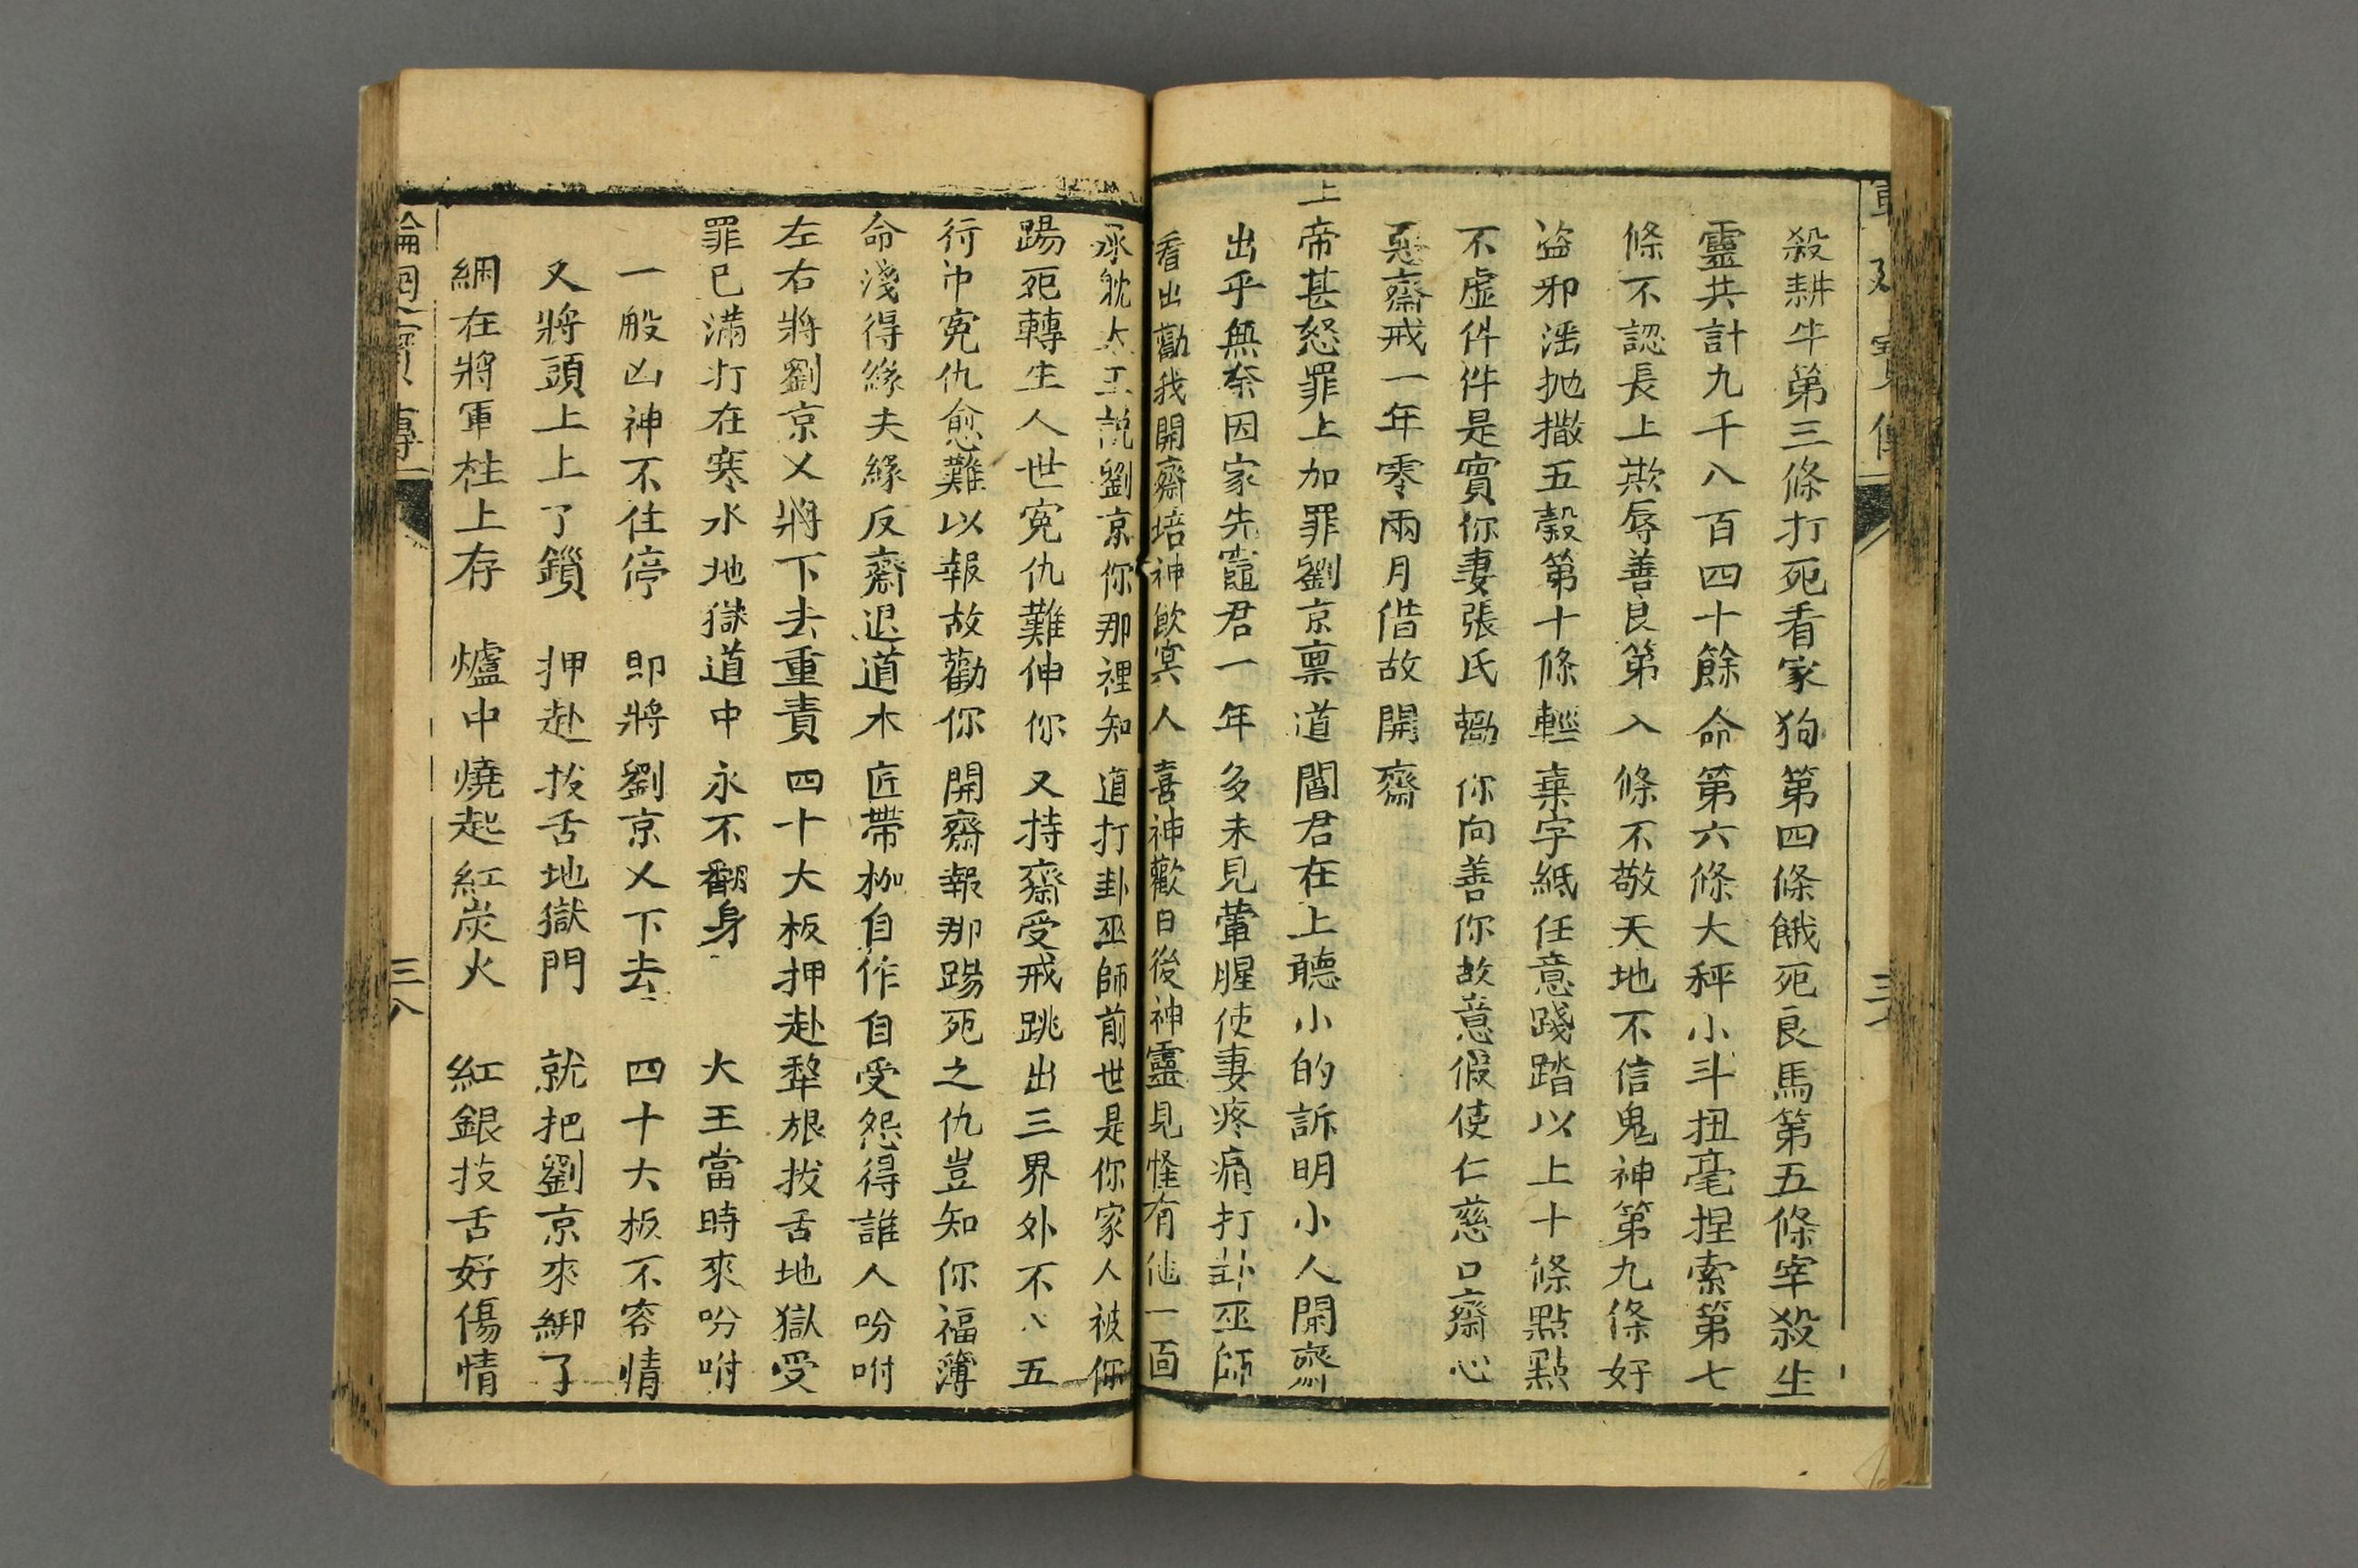 殺耕牛第三條打死看家狗第四條餓死良馬第五條宰殺生
靈共計九千八百四十餘命第六條大秤小斗扭毫捏索第七
條不認長上欺辱善良第八條不敬天地不信鬼神第九條奸
盜邪滛抛撒五穀第十條輕棄字紙任意踐踏以上十條點點
不虛件件是實你妻張氏勸你向善你故意假使仁慈口齋心
惡齋戒一年零兩月借故開齋
上帝甚怒罪上加罪劉京禀道閻君在上聽小的訴明小人開齋
出乎無奈因家先竈君一年多未見葷腥使妻疼痛打卦巫師
看出勸我開齋培神飲㝠人喜神歡日後神靈見怪有他一面
承躭大王說劉京你那裡知道打卦巫師前世是你家人被你
踢死轉生人世寃仇難伸你又持齋受戒跳出三界外不入五
行中寃仇愈難以報故勸你開齋報那踢死之仇豈知你福簿
命淺得緣夫緣反齋退道木匠帶枷自作自受怨得誰人吩咐
左右將劉京乂將下去重責四十大板押赴犂㫰拔舌地獄受
罪已滿打在寒水地獄道中永不翻身
大王當時來吩咐
一般凶神不住停 即將劉京乂下去 四十大板不容情
又將頭上上了鎖 押赴拔舌地獄門 就把劉京來綁了
綑在將軍柱上存 爐中燒起紅炭火 紅銀技舌好傷情
輪回寳傳
三八